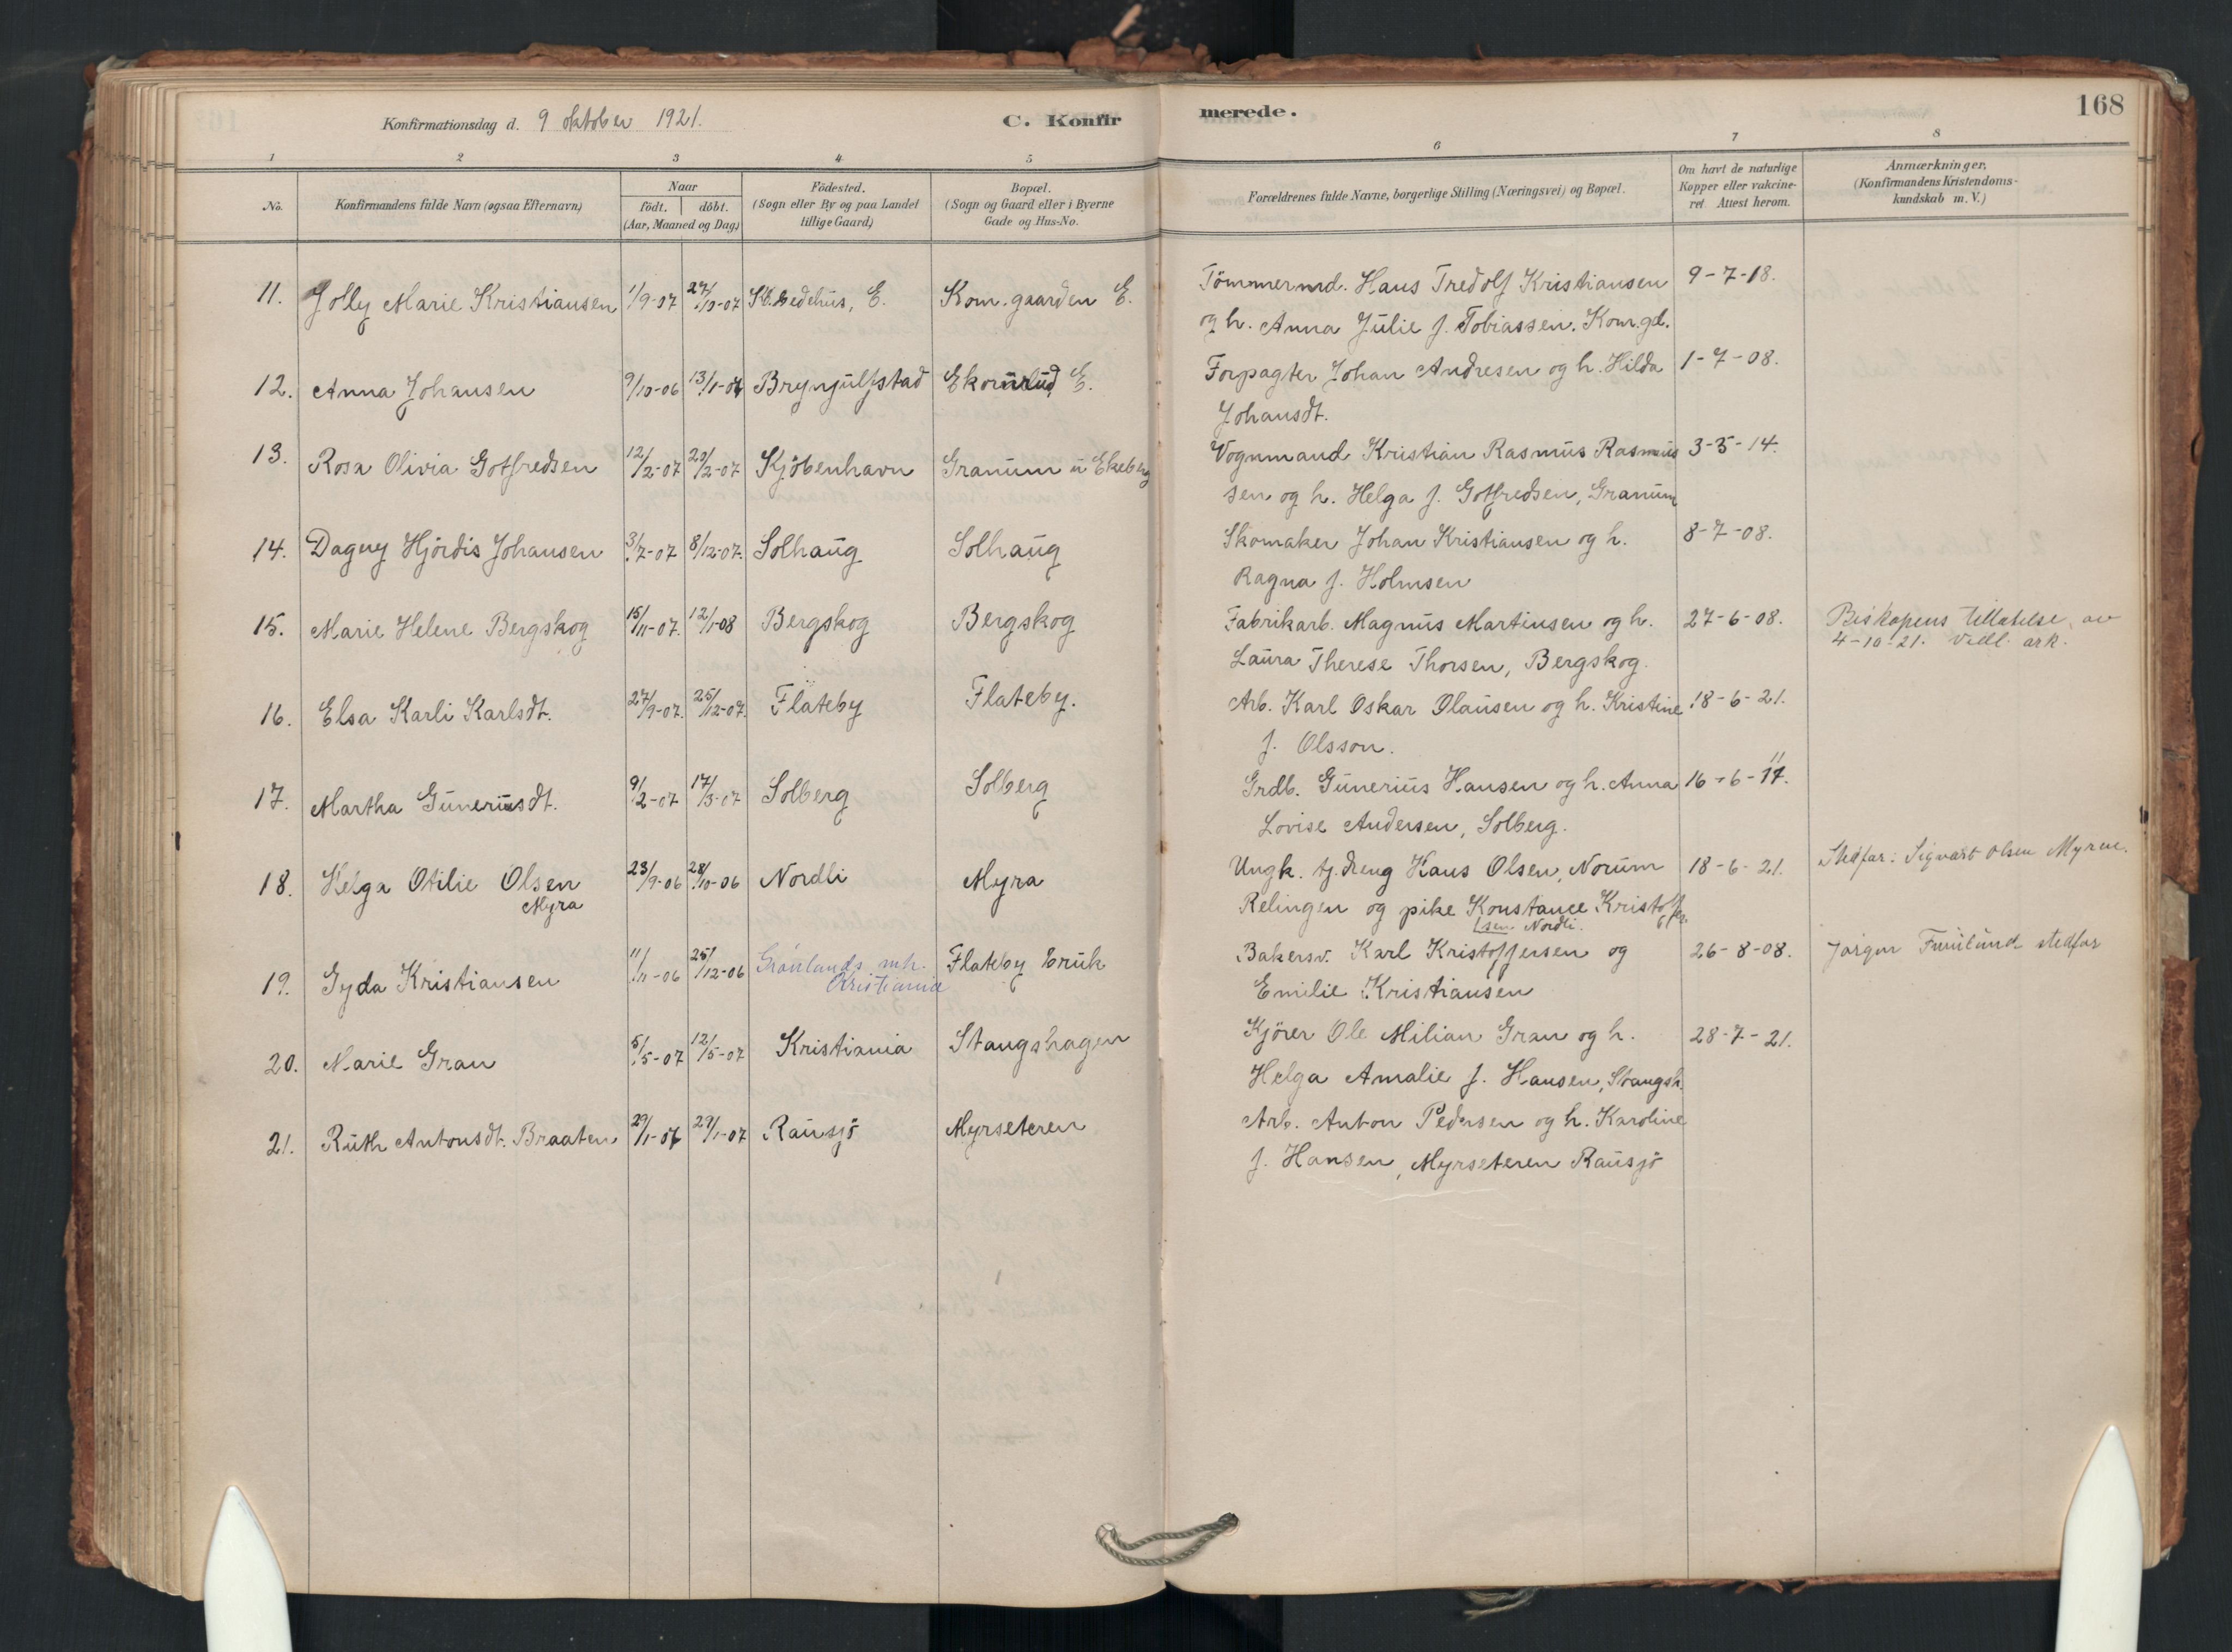 Konfirmationsdag d. 9 oktober 1921.
C. Konfir
merede.
168
1 2 3 4 5 6 7 8
No.
Konfirmandens fulde Navn (ogsaa Efternavn)
Naar
födt. döbt.
(Aar, Maaned og Dag.)
Födested.
(Sogn eller By og paa Landet
tillige Gaard)
Bopæl.
(Sogn og Gaard eller i Byerne
Gade og Hus-No.
Forældrenes fulde Navne, borgerlige Stilling (Næringsvei) og Bopæl.
Om havt de naturlige
Kopper eller vakcine-
ret. Attest herom.
Anmærkninger,
(Konfirmandens Kristendoms-
kundskab m. V.)
11. Jolly Marie Kristiansen 1/9-07 27/10-07 E. Kom. gaarden E. Tömmermd. Hans Fredolf Kristiansen 9-7-18.
og h. Anna Julie f. Tobiassen. Kom.gd.
12. Anna Johansen 9/10-06 13/1-07 Brynjulfstad Ekornrud E. Forpagter Johan Andresen og h. Hilda 1-7-08.
Johansdt.
13. Rosa Olivia Gotfredsen 12/2-07 20/2-07 Kjöbenhavn Granum u Ekeberg Vognmand Kristian Rasmus Rasmus 3-5-14.
sen og h. Helga f. Gotfredsen, Granum
14. Dagny Hjördis Johansen 3/7-07 8/12-07. Solhaug Solhaug Skomaker Johan Kristiansen og h. 8-7-08.
Ragna f. Holmsen
15. Marie Helene Bergskog 15/11-07. 12/1-08 Bergskog Bergskog Fabrikarb. Magnus Martinsen og h. 27-6-08. Biskopens tillatelse av
4-10-21. vedl. ark.
Laura Therese Thorsen, Bergskog.
16. Elsa Karli Karlsdt. 27/9-07. 25/12-07. Flateby Flateby. Arb. Karl Oskar Olausen og h. Kristine 18-6-21.
f. Olsson.
17. Martha Guneriusdt. 9/2-07 17/3-07 Solberg Solberg Grdb. Gunerius Hansen og h. Anna 16-6-11.
Lovise Andersen, Solberg.
18. Helga Otilie Olsen 23/9-06 28/10-06 Nordli Myra Ungk. tj.dreng Hans Olsen, Norum 18-6-21. Stedfar: Sigvart Olsen Myrene.
Myra
Relingen og pike Konstance Kristoffer
sen Nordli.
19. Gyda Kristiansen 11/11-06 25/12-06 Grönlands mh. Flateby bruk Bakersv. Karl Kristoffersen og 26-8-08. Jörgen stedfar
Kristiania
Emilie Kristiansen
20. Marie Gran 5/5-07 12/5-07 Kristiania Stangshagen Kjörer Ole Milian Gran og h. 28-7-21.
Helga Amalie f. Hansen, Stangsh.
21. Ruth Antonsdt. Braaten 29/1-07 29/1-07 Rausjö Myrseteren Arb. Anton Pedersen og h. Karoline
f. Hansen, Myrseteren Rausjö